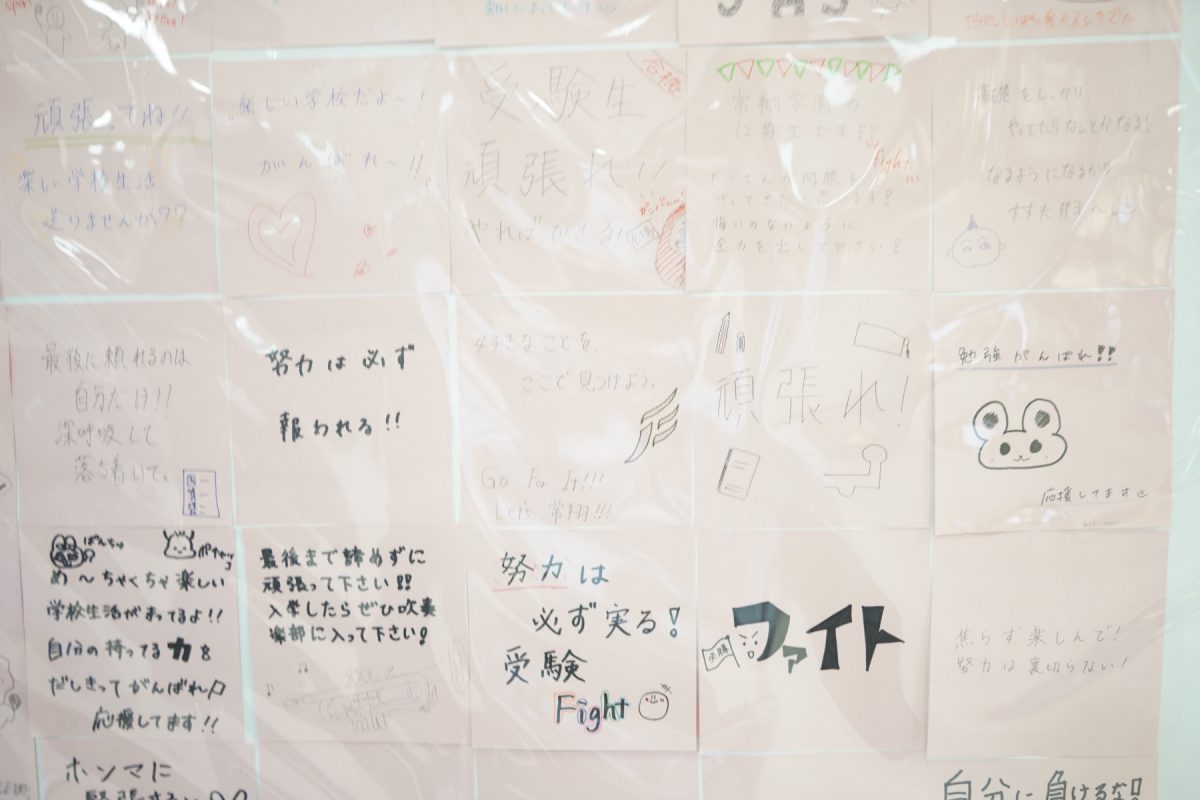 頑張ってね!!
楽しい学校生活
送りませんか??
楽しい学校だよ～!
がんばれ～!!
合格
受験生
頑張れ!!
やればできる!
常翔学園の
12期生です!!
fight!!!
たくさんの問題を
やってきたと思います!
悔いのないように
全力を出して下さい!
基礎をしっかり
やってたらなんとかなる!
なるようになるから
大丈夫
最後に頼れるのは
自分だけ!!
深呼吸して
落ち着いて。
努力は必ず
報われる!!
好きなことを、
ここで見つけよう。
Go For It!!!
Let's 常翔!!!
頑張れ!
勉強がんばれ!!
応援してます
め～ちゃくちゃ楽しい
学校生活がまってるよ!!
自分の持ってる力を
だしきってがんばれ♪
応援してます!!
最後まで諦めずに
頑張って下さい!!
入学したらぜひ吹奏
楽部に入って下さい!
努力は
必ず実る!
受験
Fight
必勝
ファイト
焦らず楽しんで!
努力は裏切らない!
ホンマに
自分に負けるな!